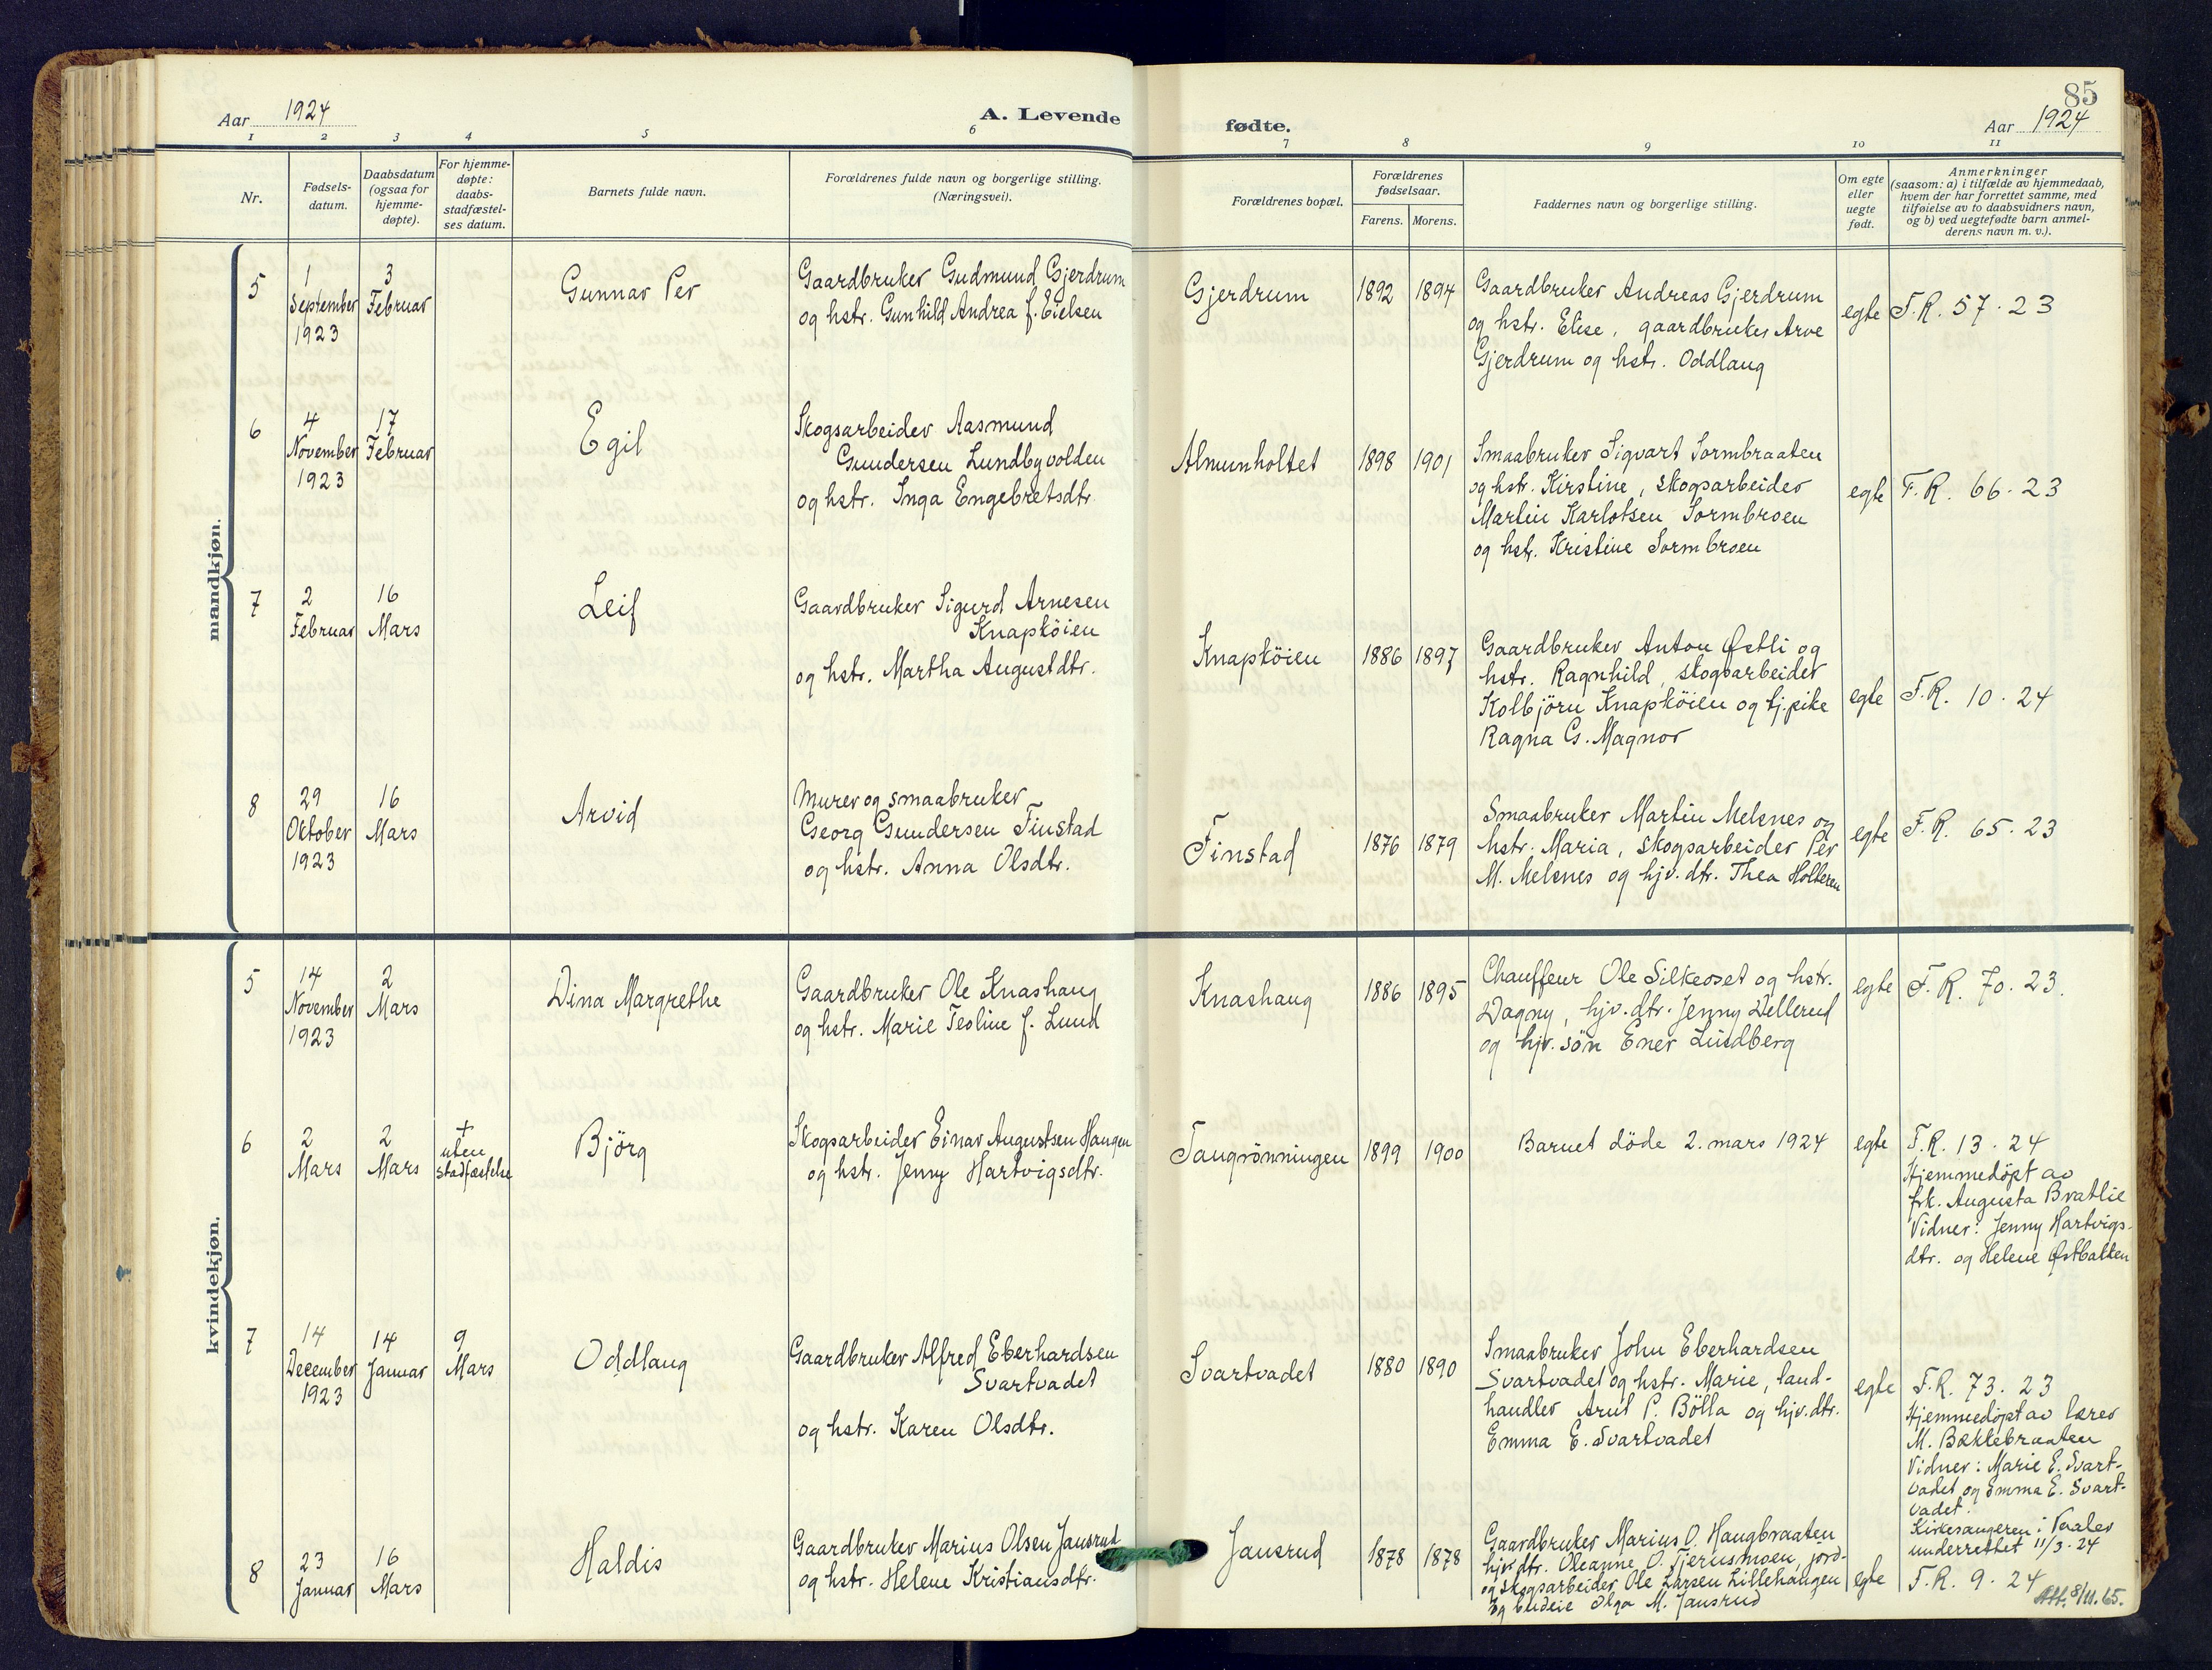 85
Aar 1924
A. Levende
fødte.
Aar 1924
1 2 3 4 5 6 7 8 9 10 11
Nr.
Fødsels-
datum.
Daabsdatum
(ogsaa for
hjemme-
døpte).
For hjemme-
døpte:
daabs-
stadfæstel-
ses datum.
Barnets fulde navn.
Forældrenes fulde navn og borgerlige stilling.
(Næringsvei).
Forældrenes bopæl.
Forældrenes
fødselsaar.
Farens. Morens.
Faddernes navn og borgerlige stilling.
Om egte
eller
uegte
født.
Anmerkninger
(saasom: a) i tilfælde av hjemmedaab,
hvem der har forrettet samme, med
tilføielse av to daabsvidners navn,
og b) ved uegtefødte barn anmel-
derens navn m. v.).
mandkjøn.
5
1
September
1923
3
Februar
Gunnar Per
Gaardbruker Gudmund Gjerdrum
og hstr. Gunhild Andrea f. Eielsen
Gjerdrum
1892 1894
Gaardbruker Andreas Gjerdrum
og hstr. Elise, gaardbruker Arve
Gjerdrum og hstr. Oddlaug
egte
F.R. 57. 23
6
4
November
1923
17
Februar
Egil
Skogsarbeider Aasmund
Gundersen Lundbyvolden
og hstr. Inga Engebretsdtr.
Almunholtet
1898 1901
Smaabruker Sigvart Sormbraaten
og hstr. Kirstine, skogsarbeider
Martin Karlotsen Sormbroen
og hstr. Kristine Sormbroen
egte
F.R. 66. 23
7
2
Februar
16
Mars
Leif
Gaardbruker Sigurd Arnesen
Knapköien
og hstr. Martha Augustdtr.
Knapköien
1886 1897
Gaardbruker Anton Østli og
hstr. Ragnhild, skogsarbeider
Kolbjörn Knapköien og tj.pike
Ragna G. Magnor
egte
F.R. 10. 24
8
29
Oktober
1923
16
Mars
Arvid
Murer og smaabruker
Georg Gundersen Finstad
og hstr. Anna Olsdtr.
Finstad
1876 1879
Smaabruker Martin Melsnes og
hstr. Maria, skogsarbeider Per
M. Melsnes og hjv. dtr. Thea Holteren
egte
F.R. 65. 23
kvindekjøn.
5
14
November
1923
2
Mars
Dina Margrethe
Gaardbruker Ole Knashaug
og hstr. Marie Teoline f. Lund
Knashaug
1886 1895
Chauffeur Ole Silkeoset og hstr.
Dagny, hjv. dtr. Jenny Dellerud
og hjv. sön Ener Lindberg
egte
F.R. 70. 23.
6
2
Mars
2
Mars
+
uten
stadfæstelse
Björg
Skogsarbeider Einar Augustsen Haugen
og hstr. Jenny Hartvigsdtr.
Taugrönningen
1899 1900
Barnet döde 2. mars 1924
egte
F.R. 13. 24
Hjemmedöpt av
frk. Augusta Bratlie
Vidner: Jenny Hartvigs-
dtr. og Helene Østbakken
7
14
December
1923
14
Januar
9
Mars
Oddlaug
Gaardbruker Alfred Eberhardsen
Svartvadet
og hstr. Karen Olsdtr.
Svartvadet
1880 1890
Smaabruker John Eberhardsen
Svartvadet og hstr. Marie, land-
handler Arnt P. Bölla og hjv. dtr.
Emma E. Svartvadet
egte
F.R. 73. 23
Hjemmedöpt av lærer
M. Bækkebraaten
Vidner: Marie E. Svart-
vadet og Emma E. Svart-
vadet.
Kirkesangeren i Vaaler
underrettet 11/3. 24
8
23
Januar
16
Mars
Haldis
Gaardbruker Marius Olsen Jansrud
og hstr. Helene Kristiansdtr.
Jansrud
1878 1878
Gaardbruker Marius O. Haugbraaten
hjv. dtr. Oleanne O. Tjernsmoen, jord-
og skogsarbeider Ole Larsen Lillehaugen
og budeie Olga M. Jansrud
egte
F.R. 9. 24
Att. 8/11. 65.